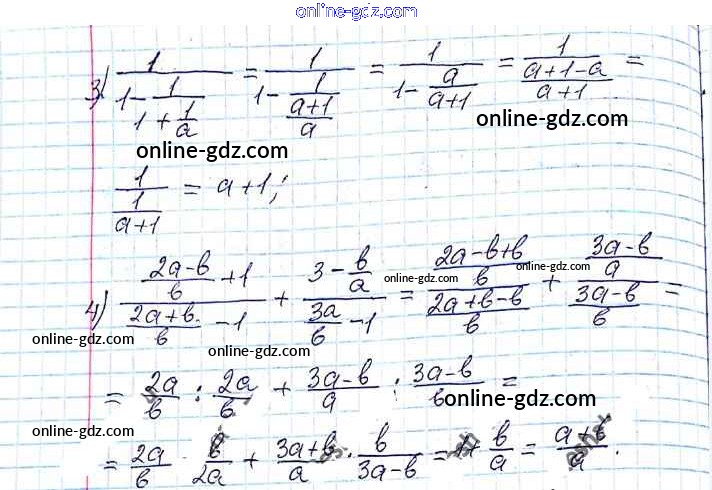 online-gdz.com
3) \frac{1}{1-\frac{1}{1+\frac{1}{a}}} = \frac{1}{1-\frac{1}{\frac{a+1}{a}}} = \frac{1}{1-\frac{a}{a+1}} = \frac{1}{\frac{a+1-a}{a+1}} =
online-gdz.com
online-gdz.com
\frac{1}{\frac{1}{a+1}} = a+1;
4) \frac{\frac{2a-b}{b}+1}{\frac{2a+b}{b}-1} + \frac{3-\frac{b}{a}}{\frac{3a}{b}-1} = \frac{\frac{2a-b+b}{b}}{\frac{2a+b-b}{b}} + \frac{\frac{3a-b}{a}}{\frac{3a-b}{b}} =
online-gdz.com online-gdz.com
online-gdz.com
online-gdz.com
= \frac{2a}{b} : \frac{2a}{b} + \frac{3a-b}{a} : \frac{3a-b}{b} =
online-gdz.com
online-gdz.com
= \frac{2a}{b} \cdot \frac{b}{2a} + \frac{3a+b}{a} \cdot \frac{b}{3a-b} = 1+ \frac{b}{a} = \frac{a+b}{a}.